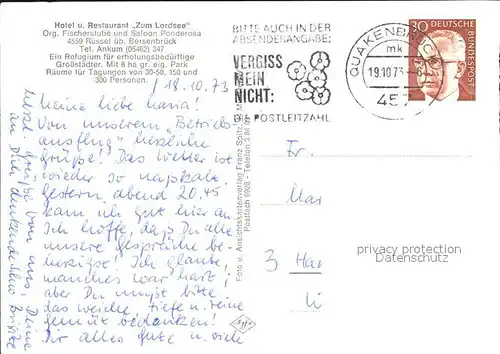 Hotel u. Restaurant "Zum Lordsee"
Org. Fischerstube und Saloon Ponderosa
4559 Rüssel üb. Bersenbrück
Tel. Ankum (05462) 347
Ein Refugium für erholungsbedürftige
Großstädter. Mit 8 ha gr. eig. Park
Räume für Tagungen von 30-50, 150 und
300 Personen.
18.10.73
Meine liebe Maria!
Von unserem "Betriebs-
ausflug" herzliche
Grüße! Das Wetter ist
wieder so naßkalt.
Gestern abend 20.45
kam ich gut hier an.
Ich hoffe, daß Du alle
unsere Gespräche be-
herzigst. Ich glaube,
manches war hart;
aber Du mußt bitte
das weiche, tiefe u. reine
Gemüt bedenken!
Dir alles Gute u. viele
herzl. Grüße von uns, Deine
an Dich denkende Brigitte
Foto u. Ansichtskartenverlag Franz Spitz
Postfach 6928 - Telefon
BITTE AUCH IN DER
ABSENDERANGABE:
VERGISS
MEIN
NICHT:
DIE POSTLEITZAHL
QUAKENBRÜCK
mk
19.10.73
457
30
DEUTSCHE
BUNDESPOST
Fr.
Mar
3 Han
Li
privacy protection
Datenschutz